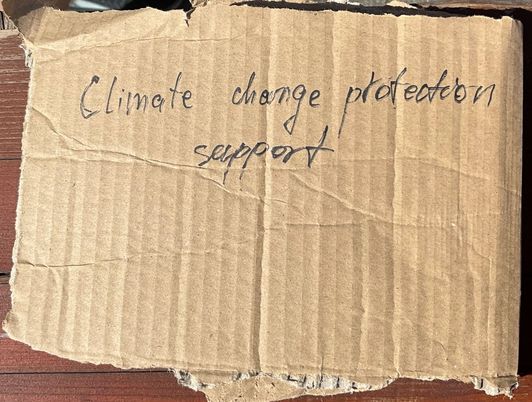 Climate change protection
support